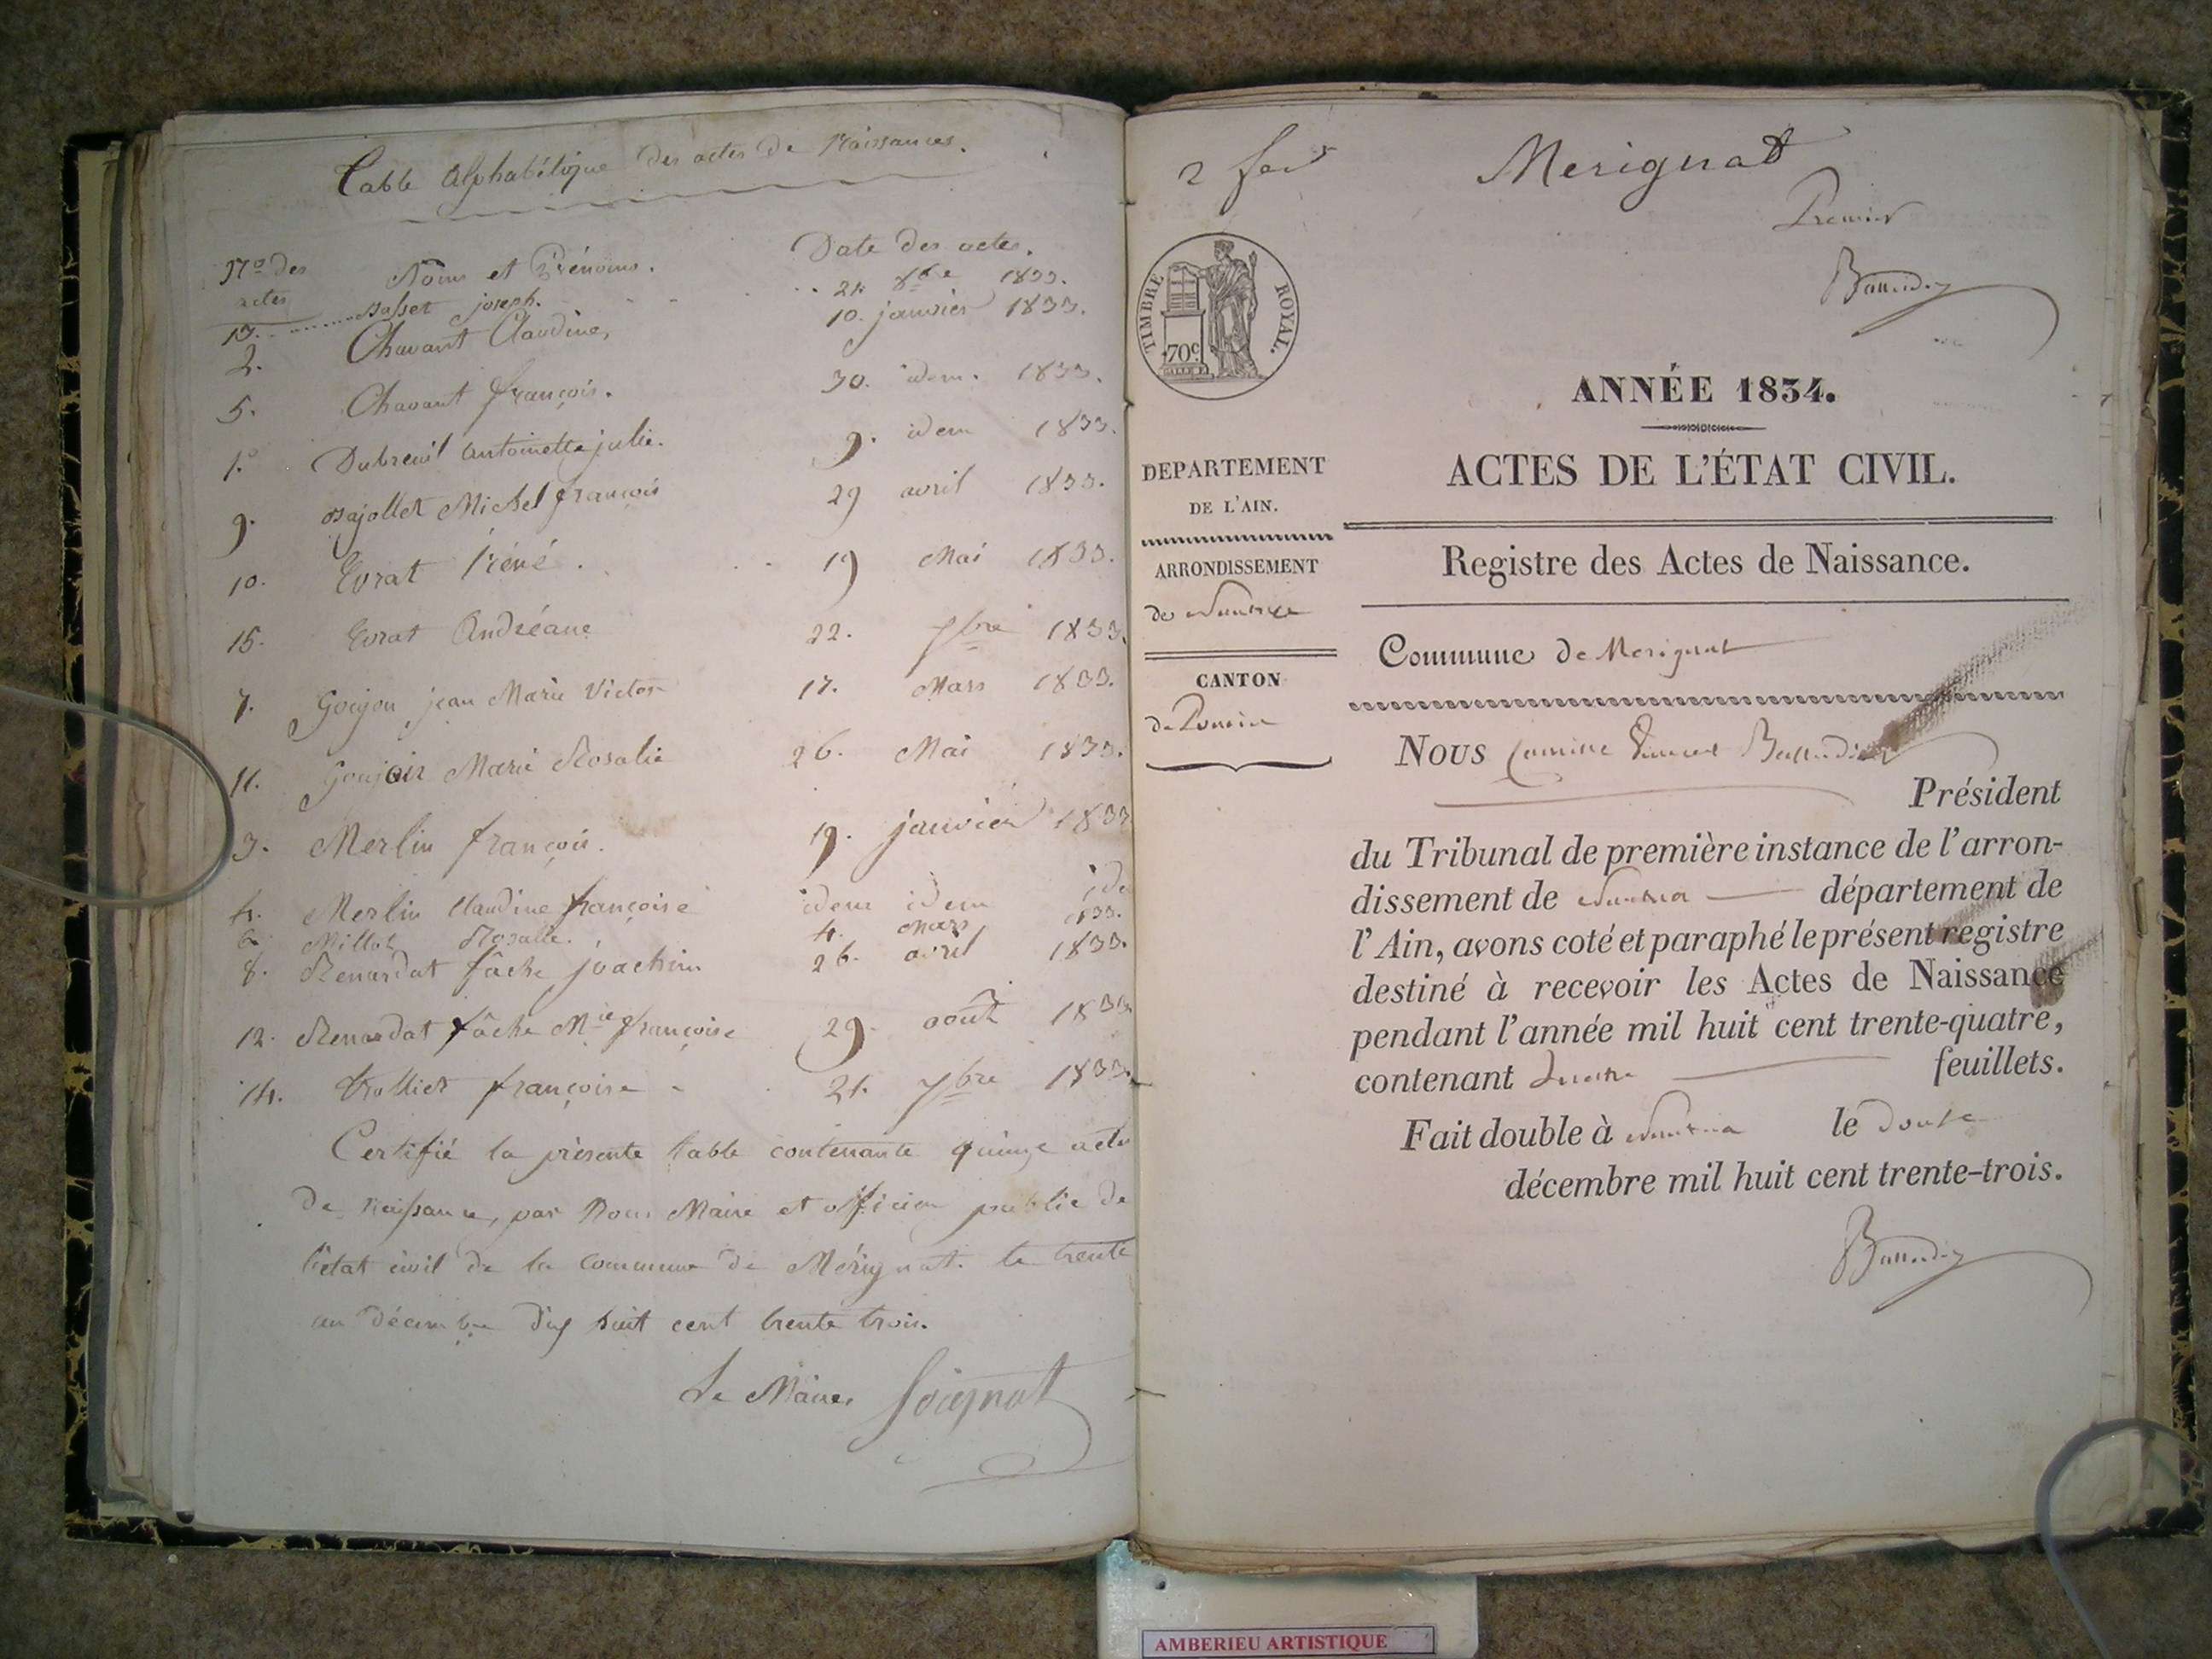 Table Alphabétique des actes de Naissances.
Nos des actes
Noms et Prénoms.
Date des actes.
13. joseph. 21. 8bre 1833.
2. Chavant Claudine, 10. janvier 1833.
5. Chavant françois. 30. idem. 1833.
1. Dubreuil antoinette julie. 9. idem 1833.
9. Michel françois 29 avril 1833.
10. Evrat 19 Mai 1833.
15. Evrat Andréane 22. 1833.
7. Goujon jean Marie Victor 17. Mars 1833.
11. Goujon Marie Rosalie 26. Mai 1833.
3. Merlin françois. 19. janvier 1833
4. Merlin Claudine françoise idem idem
6. Millot Rosalie. 4. Mars 1833.
8. Renardat fâche joachim 26. avril 1833.
12. Renardat fâche Mie françoise 29. août 1833
14. françoise 21. 1833.
Certifié la présente table contenante quinze actes
de naissance, par Nous Maire et officier public de
l'état civil de la commune de Mérignat. le trente
un décembre dix huit cent trente trois.
Le Maire,
2 fer
Merignat
Premier
TIMBRE ROYAL.
70c
ANNÉE 1834.
ACTES DE L'ÉTAT CIVIL.
Registre des Actes de Naissance.
DEPARTEMENT
DE L'AIN.
ARRONDISSEMENT
de Nantua
CANTON
de Poncin
Commune de Merignat
Nous Camille Vincent
Président
du Tribunal de première instance de l'arron-
dissement de Nantua département de
l'Ain, avons coté et paraphé le présent registre
destiné à recevoir les Actes de Naissance
pendant l'année mil huit cent trente-quatre,
contenant quatre feuillets.
Fait double à Nantua le douze
décembre mil huit cent trente-trois.
AMBERIEU ARTISTIQUE